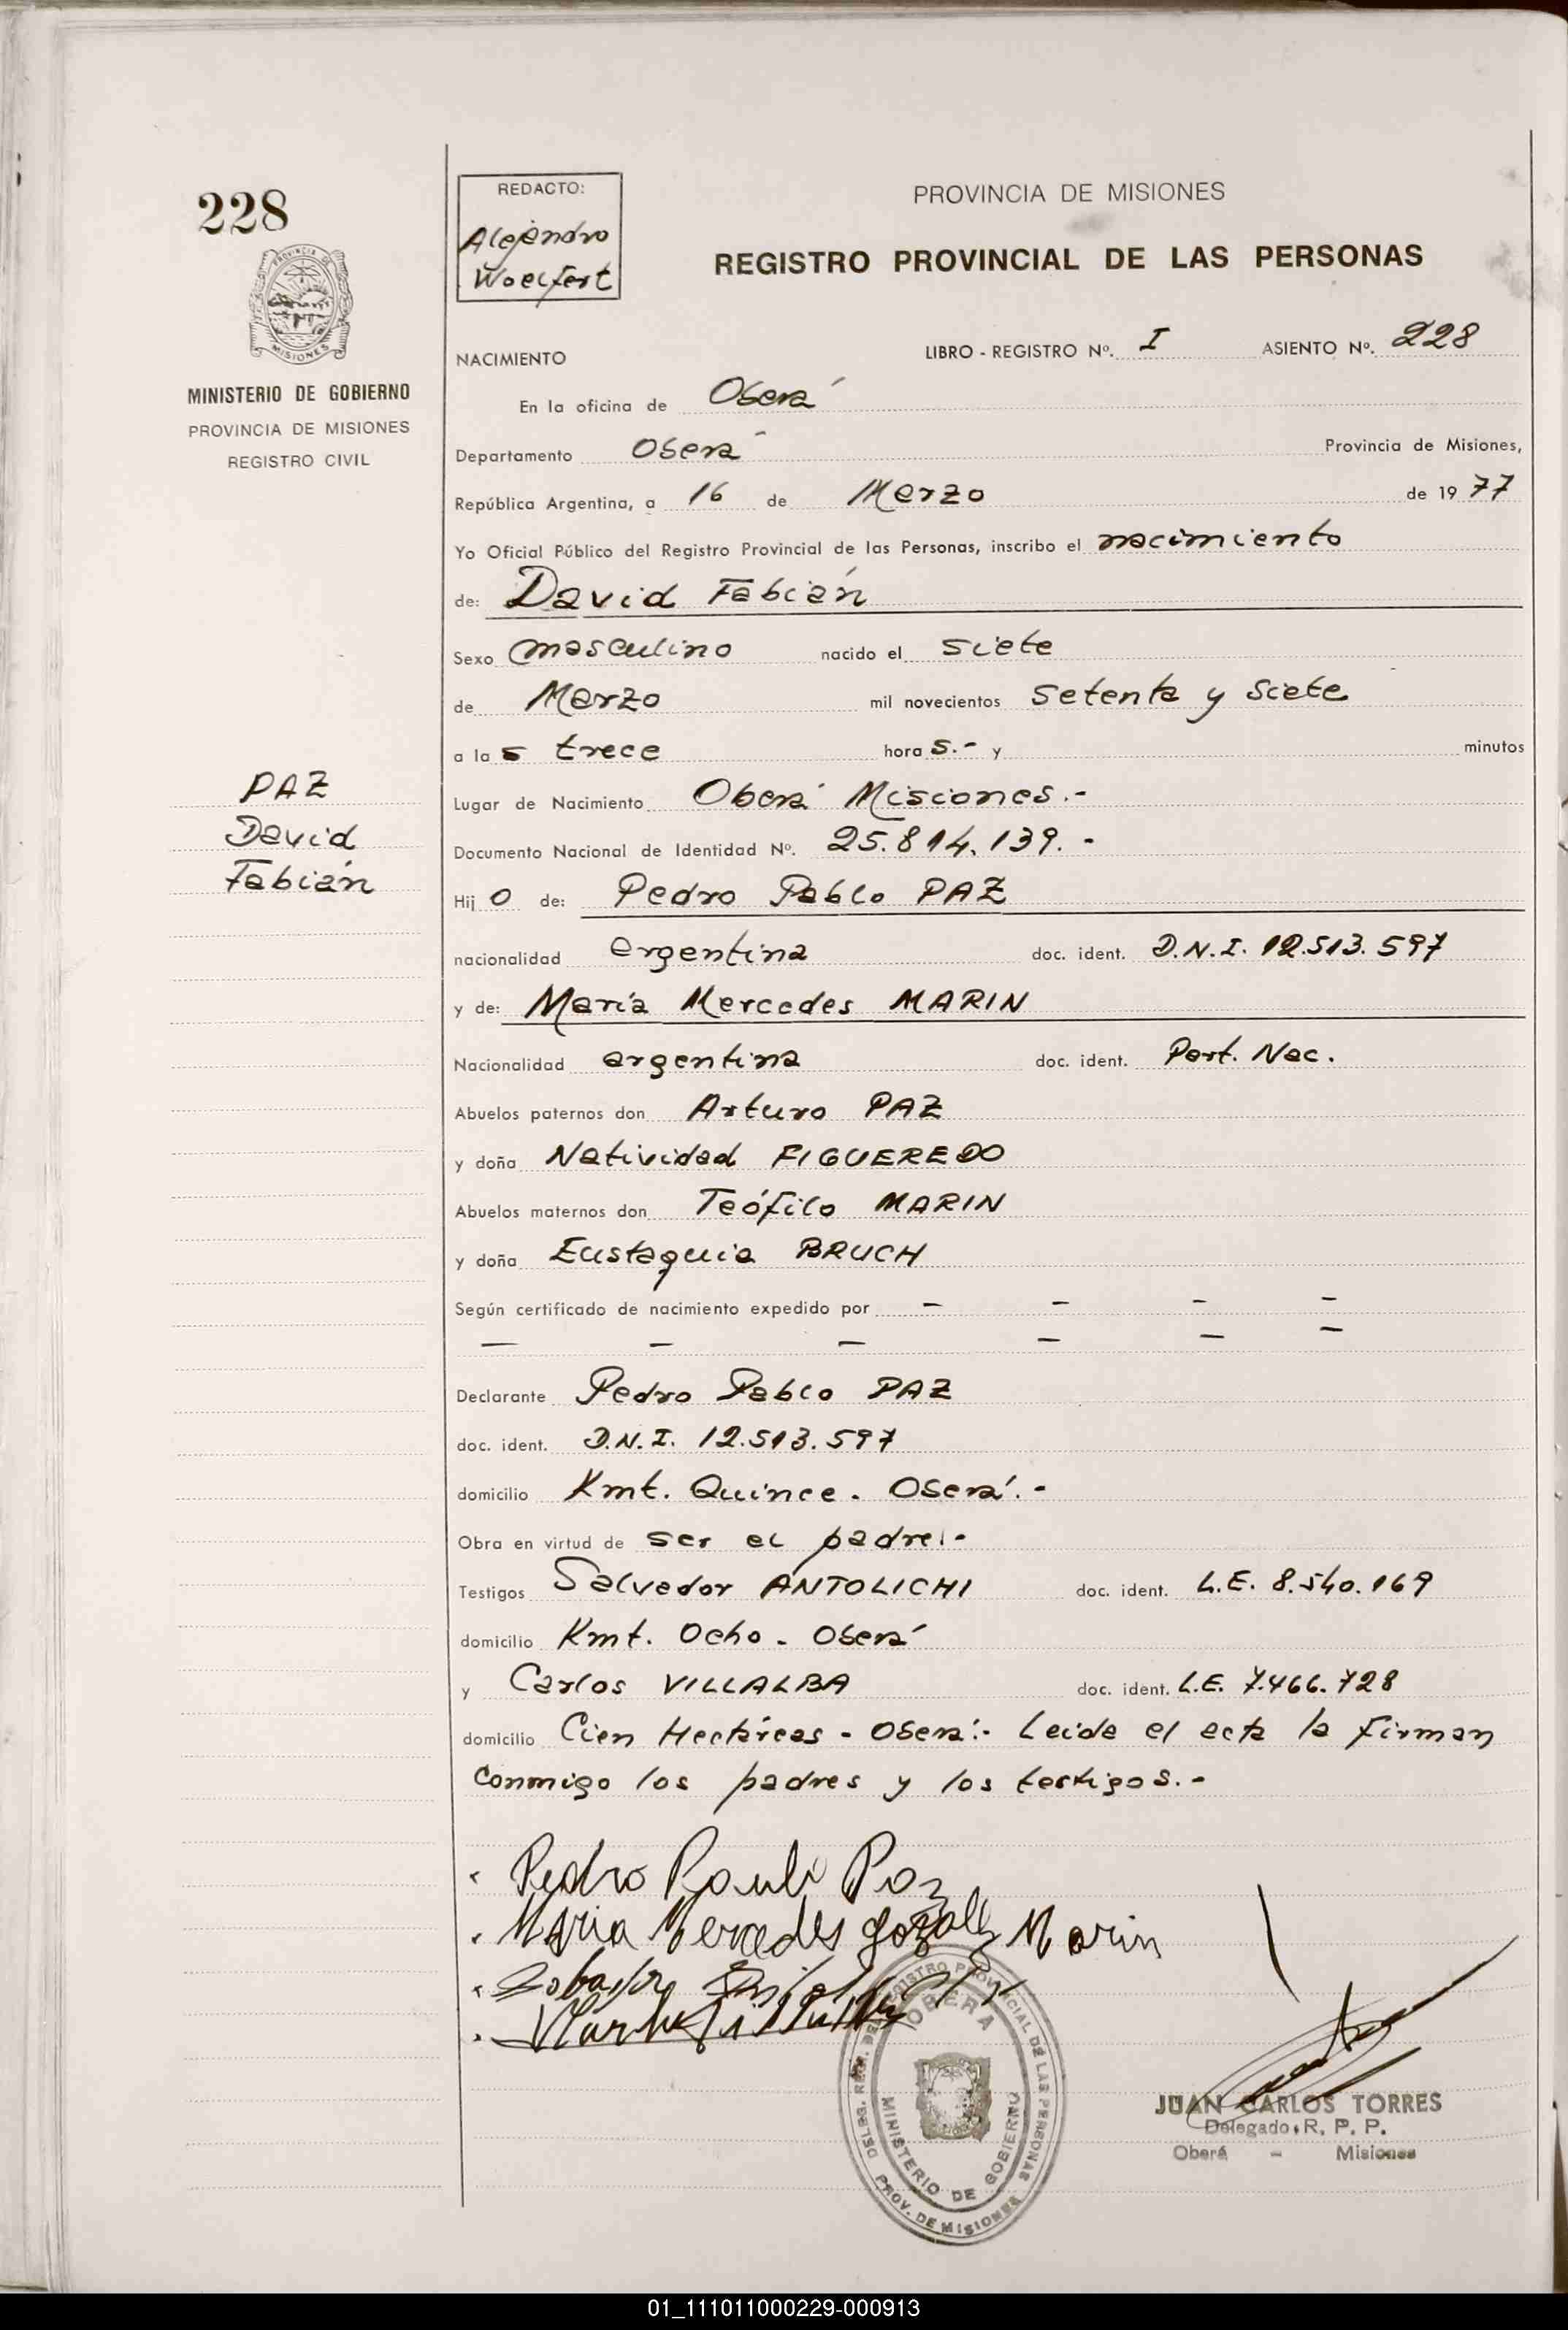 228
PROVINCIA DE
MISIONES
MINISTERIO DE GOBIERNO
PROVINCIA DE MISIONES
REGISTRO CIVIL
REDACTO:
Alejandro
Woelfert
PROVINCIA DE MISIONES
REGISTRO PROVINCIAL DE LAS PERSONAS
NACIMIENTO LIBRO - REGISTRO Nº. I ASIENTO Nº. 228
En la oficina de Oberá
Departamento Oberá Provincia de Misiones,
República Argentina, a 16 de Marzo de 1977
Yo Oficial Público del Registro Provincial de las Personas, inscribo el nacimiento
de: David Fabián
Sexo masculino nacido el siete
de Marzo mil novecientos setenta y siete
a las trece horas.- y minutos
PAZ
David
Fabián
Lugar de Nacimiento Oberá Misiones.-
Documento Nacional de Identidad Nº. 25.814.139.-
Hijo de: Pedro Pablo PAZ
nacionalidad argentina doc. ident. D.N.I. 12.513.597
y de: María Mercedes MARIN
Nacionalidad argentina doc. ident. Part. Nac.
Abuelos paternos don Arturo PAZ
y doña Natividad FIGUEREDO
Abuelos maternos don Teófilo MARIN
y doña Eustaquia BRUCH
Según certificado de nacimiento expedido por - - - -
- - - - - -
Declarante Pedro Pablo PAZ
doc. ident. D.N.I. 12.513.597
domicilio Kmt. Quince. Oberá.-
Obra en virtud de ser el padre.-
Testigos Salvador ANTOLICHI doc. ident. L.E. 8.540.169
domicilio Kmt. Ocho - Oberá
y Carlos VILLALBA doc. ident. L.E. 7.466.728
domicilio Cien Hectáreas - Oberá.- Leida el acta la firman
conmigo los padres y los testigos.-
Pedro Paz
Maria Mercedes Marin
REGISTRO PROVINCIAL DE LAS PERSONAS
OBERA
MINISTERIO DE GOBIERNO
PROV. DE MISIONES
JUAN CARLOS TORRES
Delegado R. P. P.
Oberá - Misiones
01_111011000229-000913